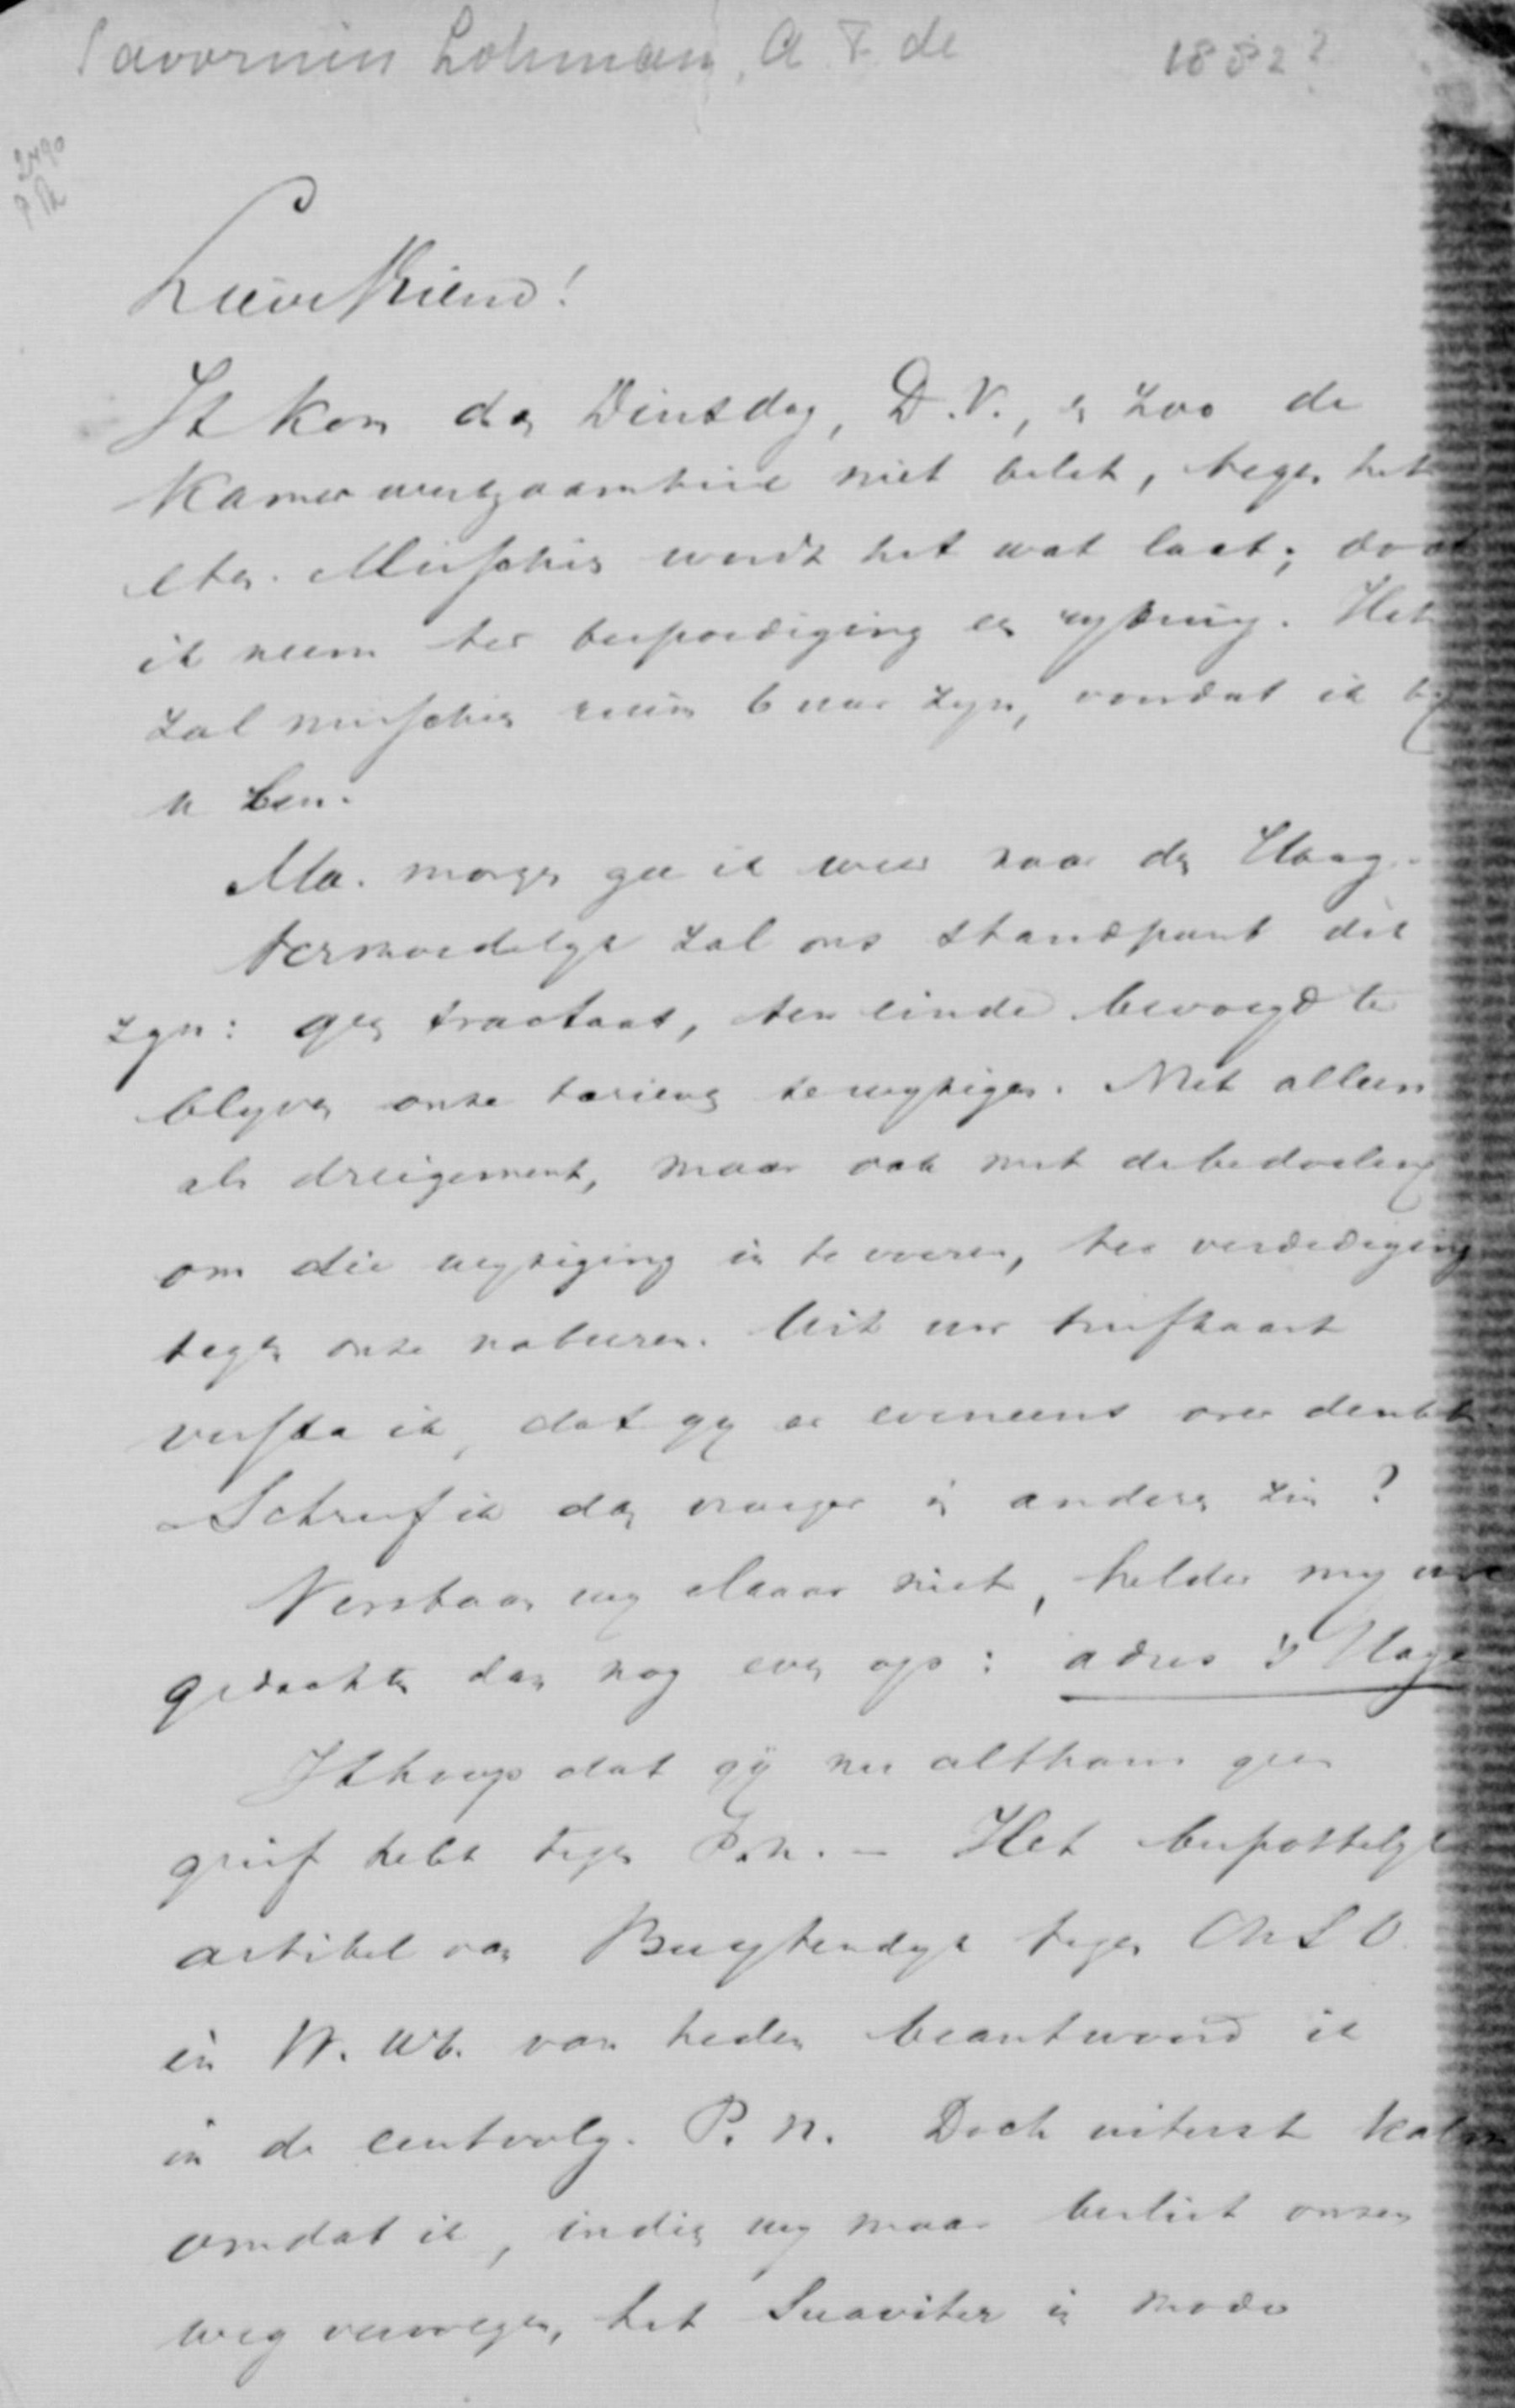 Savornin Lohman, A. F. de 1882?
2490
Lieve Vriend!
Ik kom dan Dinsdag, D.V., en zoo de
Kamerwerkzaamheid niet belet, tegen het
eten. Misschien wordt het wat laat; doch
ik neem ter bespoediging een rytuig. Het
zal misschien ruim 6 uur zyn, voordat ik by
u ben.
Ma. morgen ga ik weer naar den Haag.
Vermoedelyk zal ons standpunt dit
zyn: geen tractaat, ten einde bevoegd te
blyven onze tarieven te wyzigen. Niet alleen
als dreigement, maar ook met de bedoeling
om die wyziging in te voeren, ter verdediging
tegen onze naburen. Uit uw briefkaart
versta ik, dat gy er eveneens over denkt.
Schreef ik dan vroeger in anderen zin?
Verstaan wy elkaar niet, helder my uwe
gedachten dan nog even op: adres 's Hage
Ik hoop dat gÿ nu althans geen
grief hebt tegen P.N. – Het bespottelyk
artikel van Buytendyk tegen Ch S O.
in W. Wb. van heden beantwoord ik
in de eerstvolg. P. N. Doch uiterst kalm
omdat ik, indien wy maar beslist onzen
weg vervolgen, het Suaviter in modo